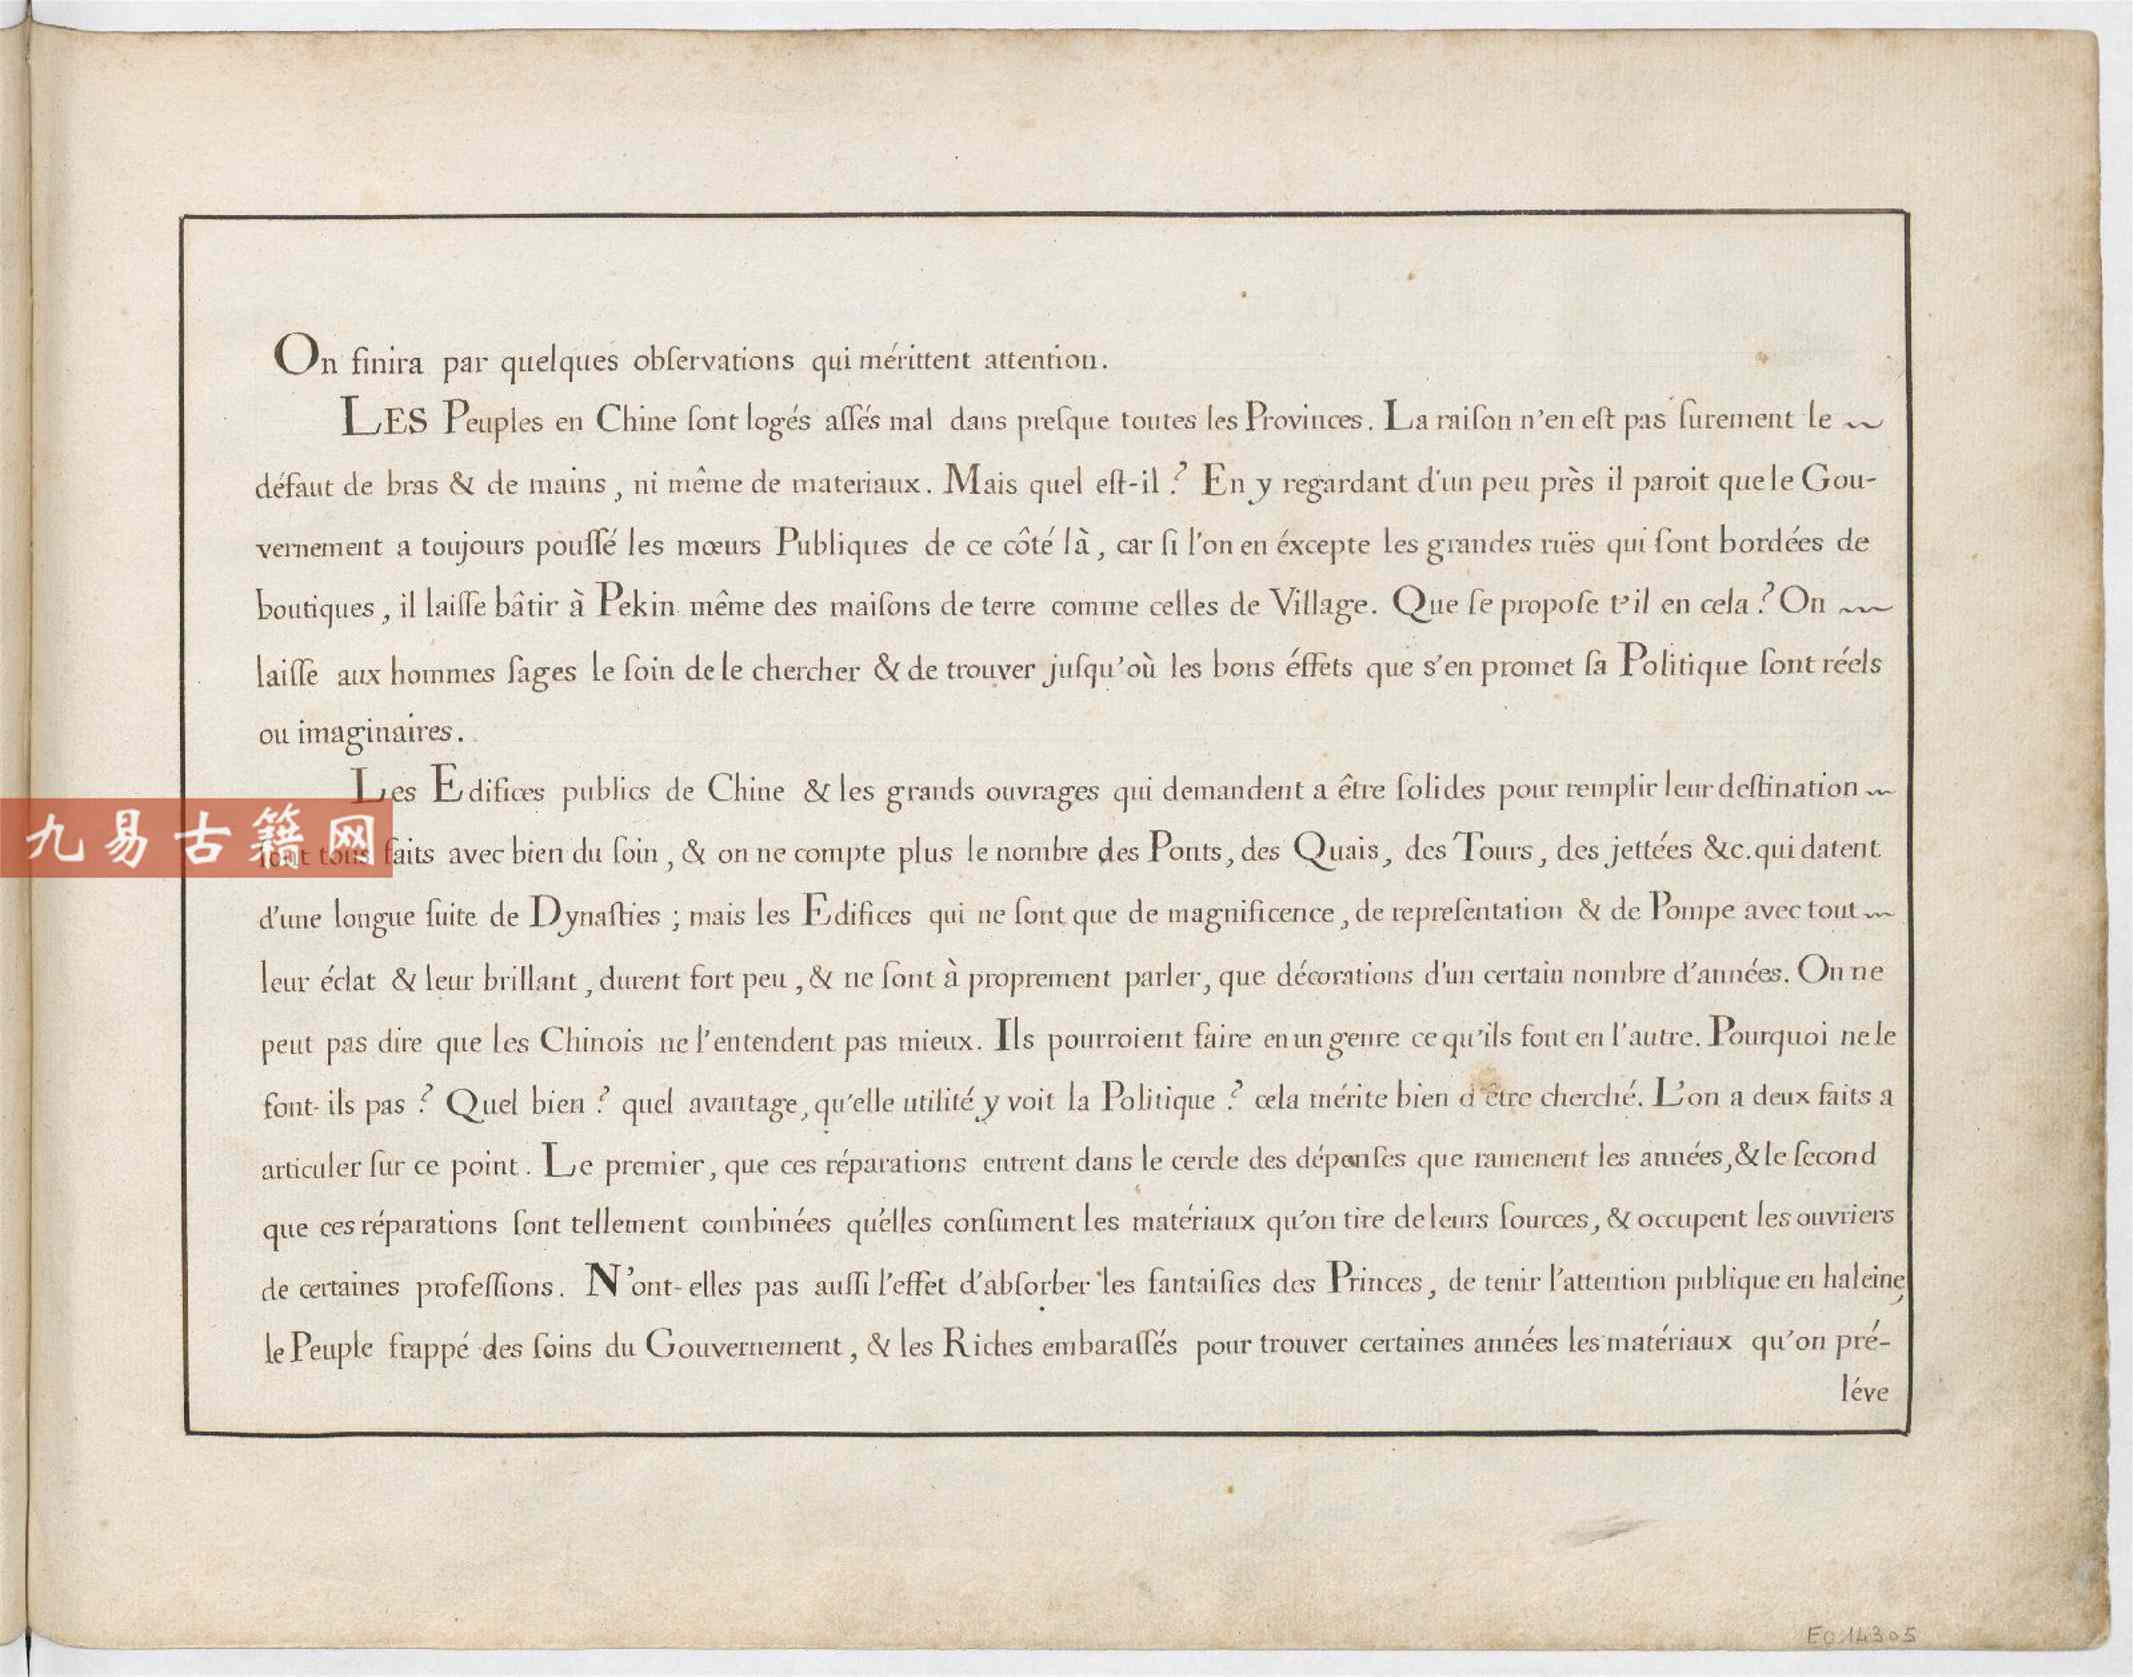 On finira par quelques obſervations qui mérittent attention.
LES Peuples en Chine ſont logés aſſés mal dans preſque toutes les Provinces. La raiſon n'en eſt pas ſurement le
défaut de bras & de mains, ni même de materiaux. Mais quel eſt-il? En y regardant d'un peu près il paroit que le Gou-
vernement a toujours pouſſé les mœurs Publiques de ce côté là, car ſi l'on en éxcepte les grandes ruës qui ſont bordées de
boutiques, il laiſſe bâtir à Pekin même des maiſons de terre comme celles de Village. Que ſe propoſe t'il en cela? On
laiſſe aux hommes ſages le ſoin de le chercher & de trouver juſqu'où les bons éffets que s'en promet ſa Politique ſont réels
ou imaginaires.
Les Edifices publics de Chine & les grands ouvrages qui demandent a être ſolides pour remplir leur deſtination
九易古籍网
ſont tous faits avec bien du ſoin, & on ne compte plus le nombre des Ponts, des Quais, des Tours, des jettées &c. qui datent
d'une longue ſuite de Dynaſties; mais les Edifices qui ne ſont que de magnificence, de repreſentation & de Pompe avec tout
leur éclat & leur brillant, durent fort peu, & ne ſont à proprement parler, que décorations d'un certain nombre d'années. On ne
peut pas dire que les Chinois ne l'entendent pas mieux. Ils pourroient faire en un genre ce qu'ils font en l'autre. Pourquoi ne le
font-ils pas? Quel bien? quel avantage, qu'elle utilité y voit la Politique? cela mérite bien d'être cherché. L'on a deux faits a
articuler ſur ce point. Le premier, que ces réparations entrent dans le cercle des dépenſes que ramenent les années, & le ſecond
que ces réparations ſont tellement combinées qu'elles conſument les matériaux qu'on tire de leurs ſources, & occupent les ouvriers
de certaines profeſſions. N'ont-elles pas auſſi l'effet d'abſorber les fantaiſies des Princes, de tenir l'attention publique en haleine,
le Peuple frappé des ſoins du Gouvernement, & les Riches embaraſſés pour trouver certaines années les matériaux qu'on pré-
léve
EO 14305